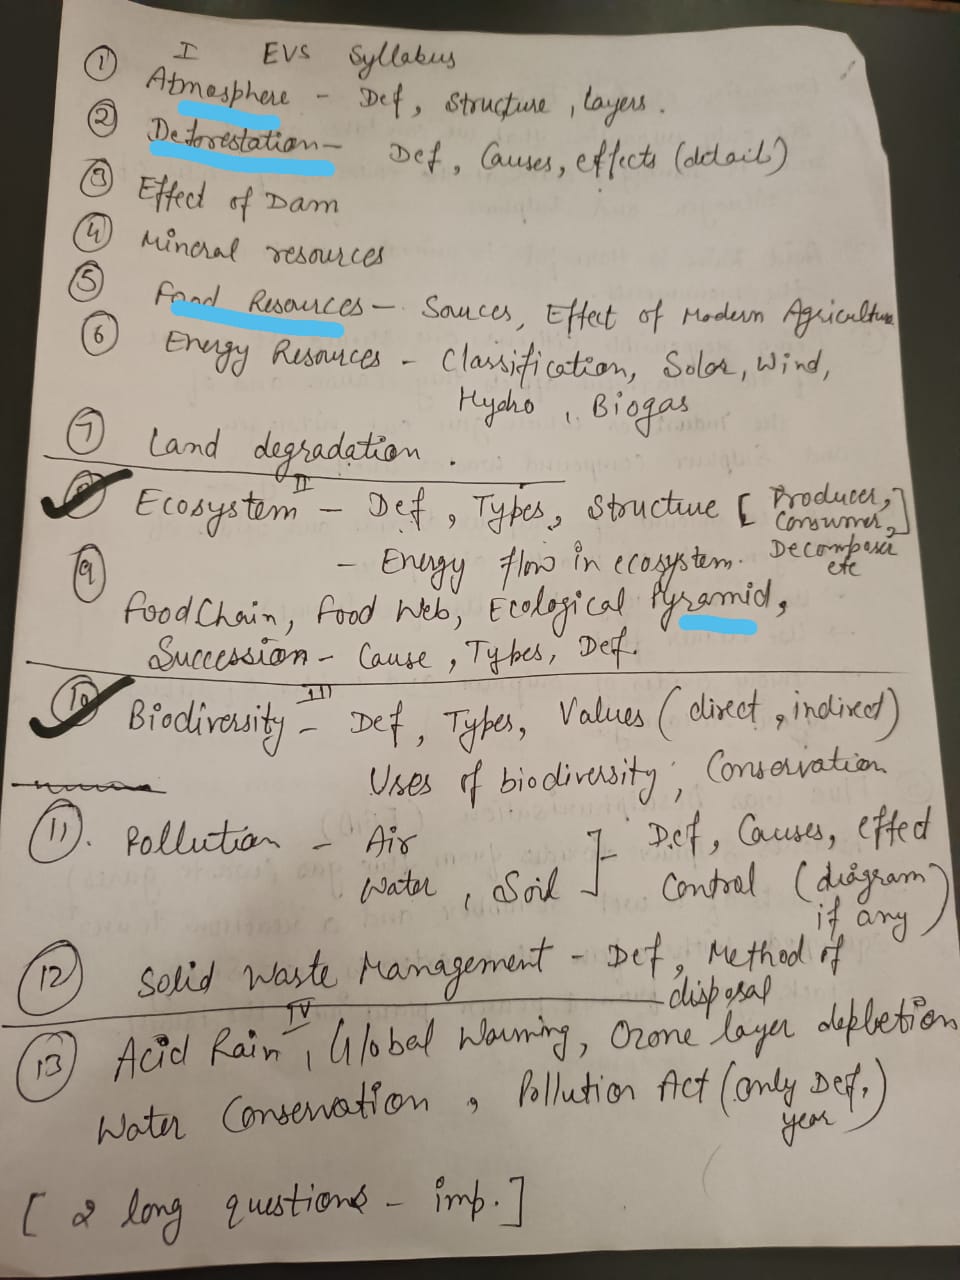 I EVS Syllabus
① Atmosphere - Def, Structure, layers.
② Deforestation - Def, Causes, effects (detail)
③ Effect of Dam
④ Mineral resources
⑤ Food Resources - Sources, Effect of Modern Agriculture
⑥ Energy Resources - Classification, Solar, Wind,
Hydro, Biogas
⑦ Land degradation.
II
⑧ Ecosystem - Def, Types, Structure [Producer,
Consumer,]
Decomposer
etc
⑨ - Energy flow in ecosystem.
Food Chain, Food Web, Ecological Pyramid,
Succession - Cause, Types, Def.
III
⑩ Biodiversity - Def, Types, Values (direct, indirect)
Uses of biodiversity, Conservation
⑪. Pollution - Air ] Def, Causes, effect
Water, Soil Control (diagram
if any)
⑫ Solid Waste Management - Def, Method of
disposal
IV
⑬ Acid Rain, Global Warming, Ozone layer depletion
Water Conservation, Pollution Act (only Def,
year)
[2 long questions - imp.]